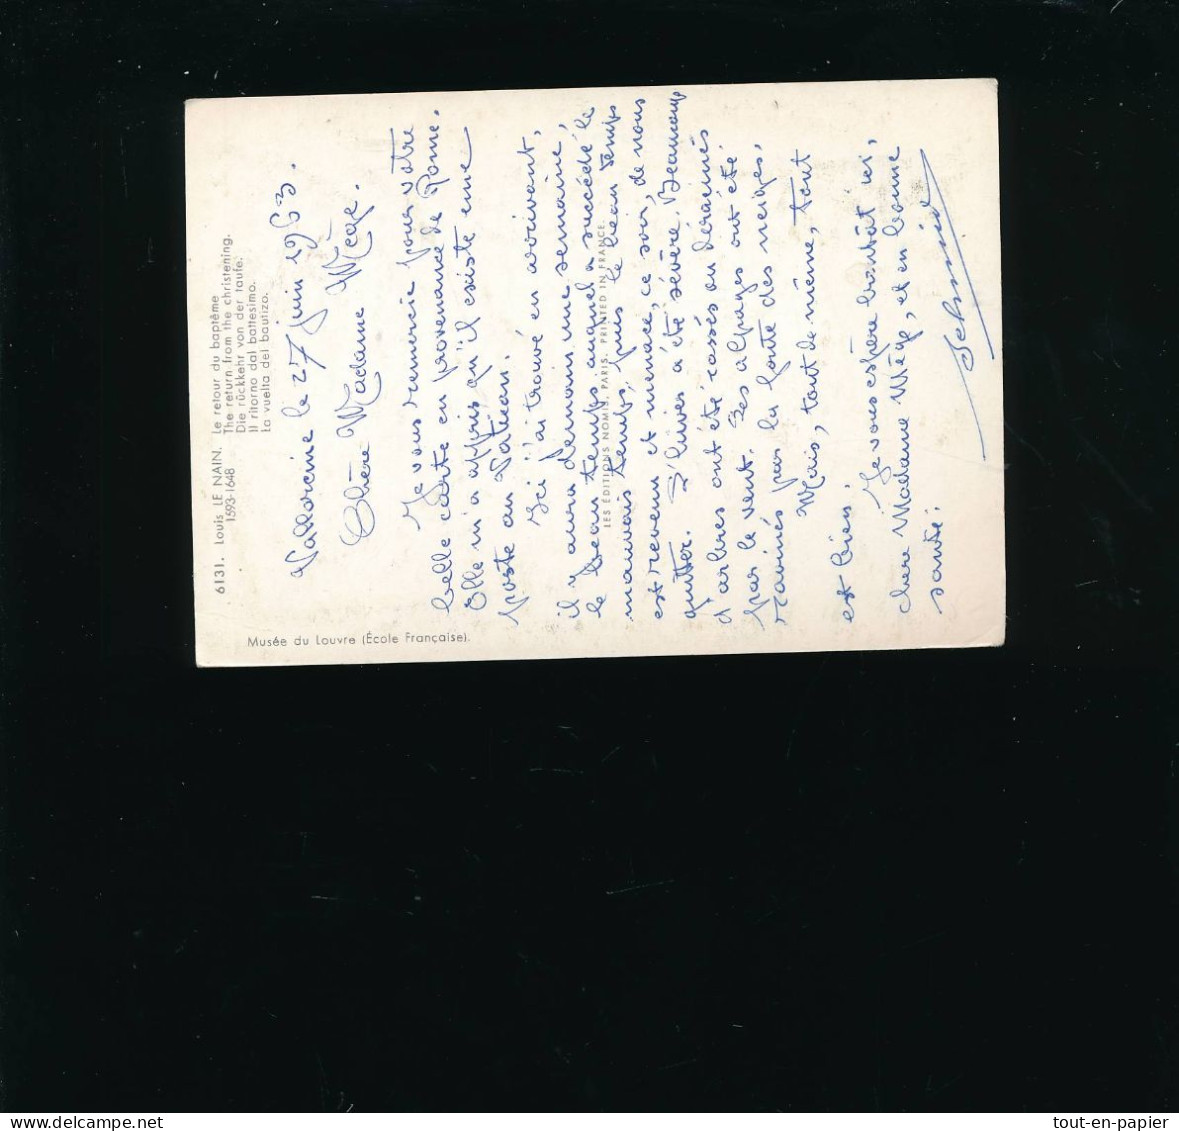 6131. Louis LE NAIN. Le retour du baptême
1593-1648 The return from the christening.
Die rückkehr von der taufe.
Il ritorno dal battesimo.
La vuelta del bautizo.
Musée du Louvre (École Française).
Vallorcine le 27 juin 1963.
Chère Madame Mège.
Je vous remercie pour votre
belle carte en provenance de Rome.
Elle m'a appris qu'il existe une
poste au Vatican.
Ici j'ai trouvé en arrivant,
il y aura demain une semaine,
le beau temps, auquel a succédé le
mauvais temps, puis le beau temps
est revenu et menace, ce soir, de nous
quitter. L'hiver a été sévère. Beaucoup
d'arbres ont été cassés ou déracinés
par le vent. Les alpages ont été
ravinés par la fonte des neiges.
Mais, tout de même, tout
est bien.
Je vous espère bientôt ici,
chère Madame Mège, et en bonne
santé.
Schmid
LES ÉDITIONS NOMIS, PARIS. PRINTED IN FRANCE
tout-en-papier